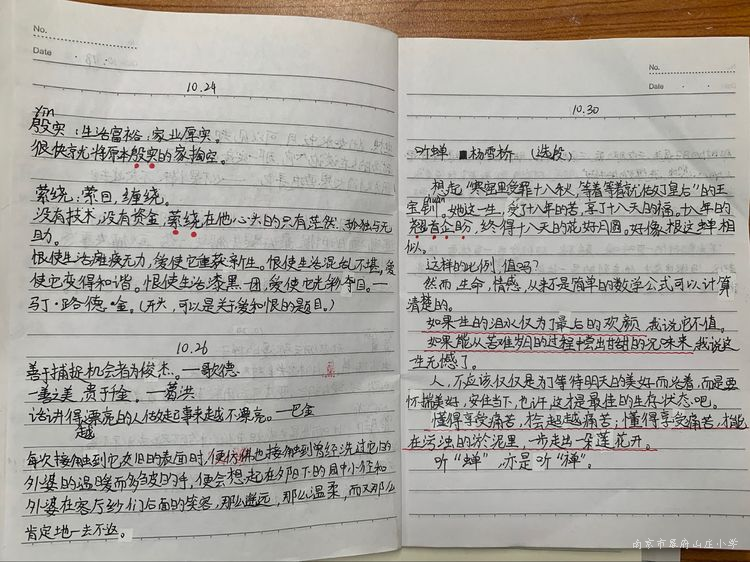 No.
Date
10.24
yīn
殷实：生活富裕；家业厚实。
很快就将原本殷实的家掏空。
萦绕：萦回，缠绕。
没有技术，没有资金，萦绕在他心头的只有茫然、孤独与无
助。
恨使生活瘫痪无力，爱使它重获新生。恨使生活混乱不堪，爱
使它变得和谐。恨使生活漆黑一团，爱使它光彩夺目。——
马丁·路德·金。（开头，可以是关于爱和恨的题目。）
10.26
善于捕捉机会者为俊杰。——歌德
一善之美，贵于千金。——葛洪
话讲得漂亮的人做起事来越不漂亮。——巴金
越
每次接触到它灰旧的表面时，便仿佛也接触到曾经洗过它的
外婆的温暖而多皱皮的手，便会想起在夕阳下的风中小径和
外婆在客厅纱门后面的笑容，那么遥远，那么温柔，而又那么
肯定地一去不返。
No.
Date
10.30
听蝉 杨雪桥 （选段）
想起“寒窑里受罪十八秋，等着等着就做了皇后”的王
chuàn
宝钏。她这一生，受了十八年的苦，享了十八天的福。十八年的
翘首企盼，终得十八天的花好月圆。好像，很这蝉相
似。
这样的比例，值吗？
然而生命，情感，从来不是简单的数学公式可以计算
清楚的。
如果一生的泪水仅为了最后的欢颜，我说它不值。
如果能从苦难岁月的过程中尝出甘甜的况味来，我说这
一生无憾了。
人，不应该仅仅是为了等待明天的美好而活着，而是要
怀揣美好，安住当下，也许，这才是最佳的生存状态吧。
懂得享受痛苦，你会超越痛苦；懂得享受痛苦，才能
在污浊的淤泥里，一步走出一朵莲花开。
听“蝉”，亦是听“禅”。
南京市幕府山庄小学